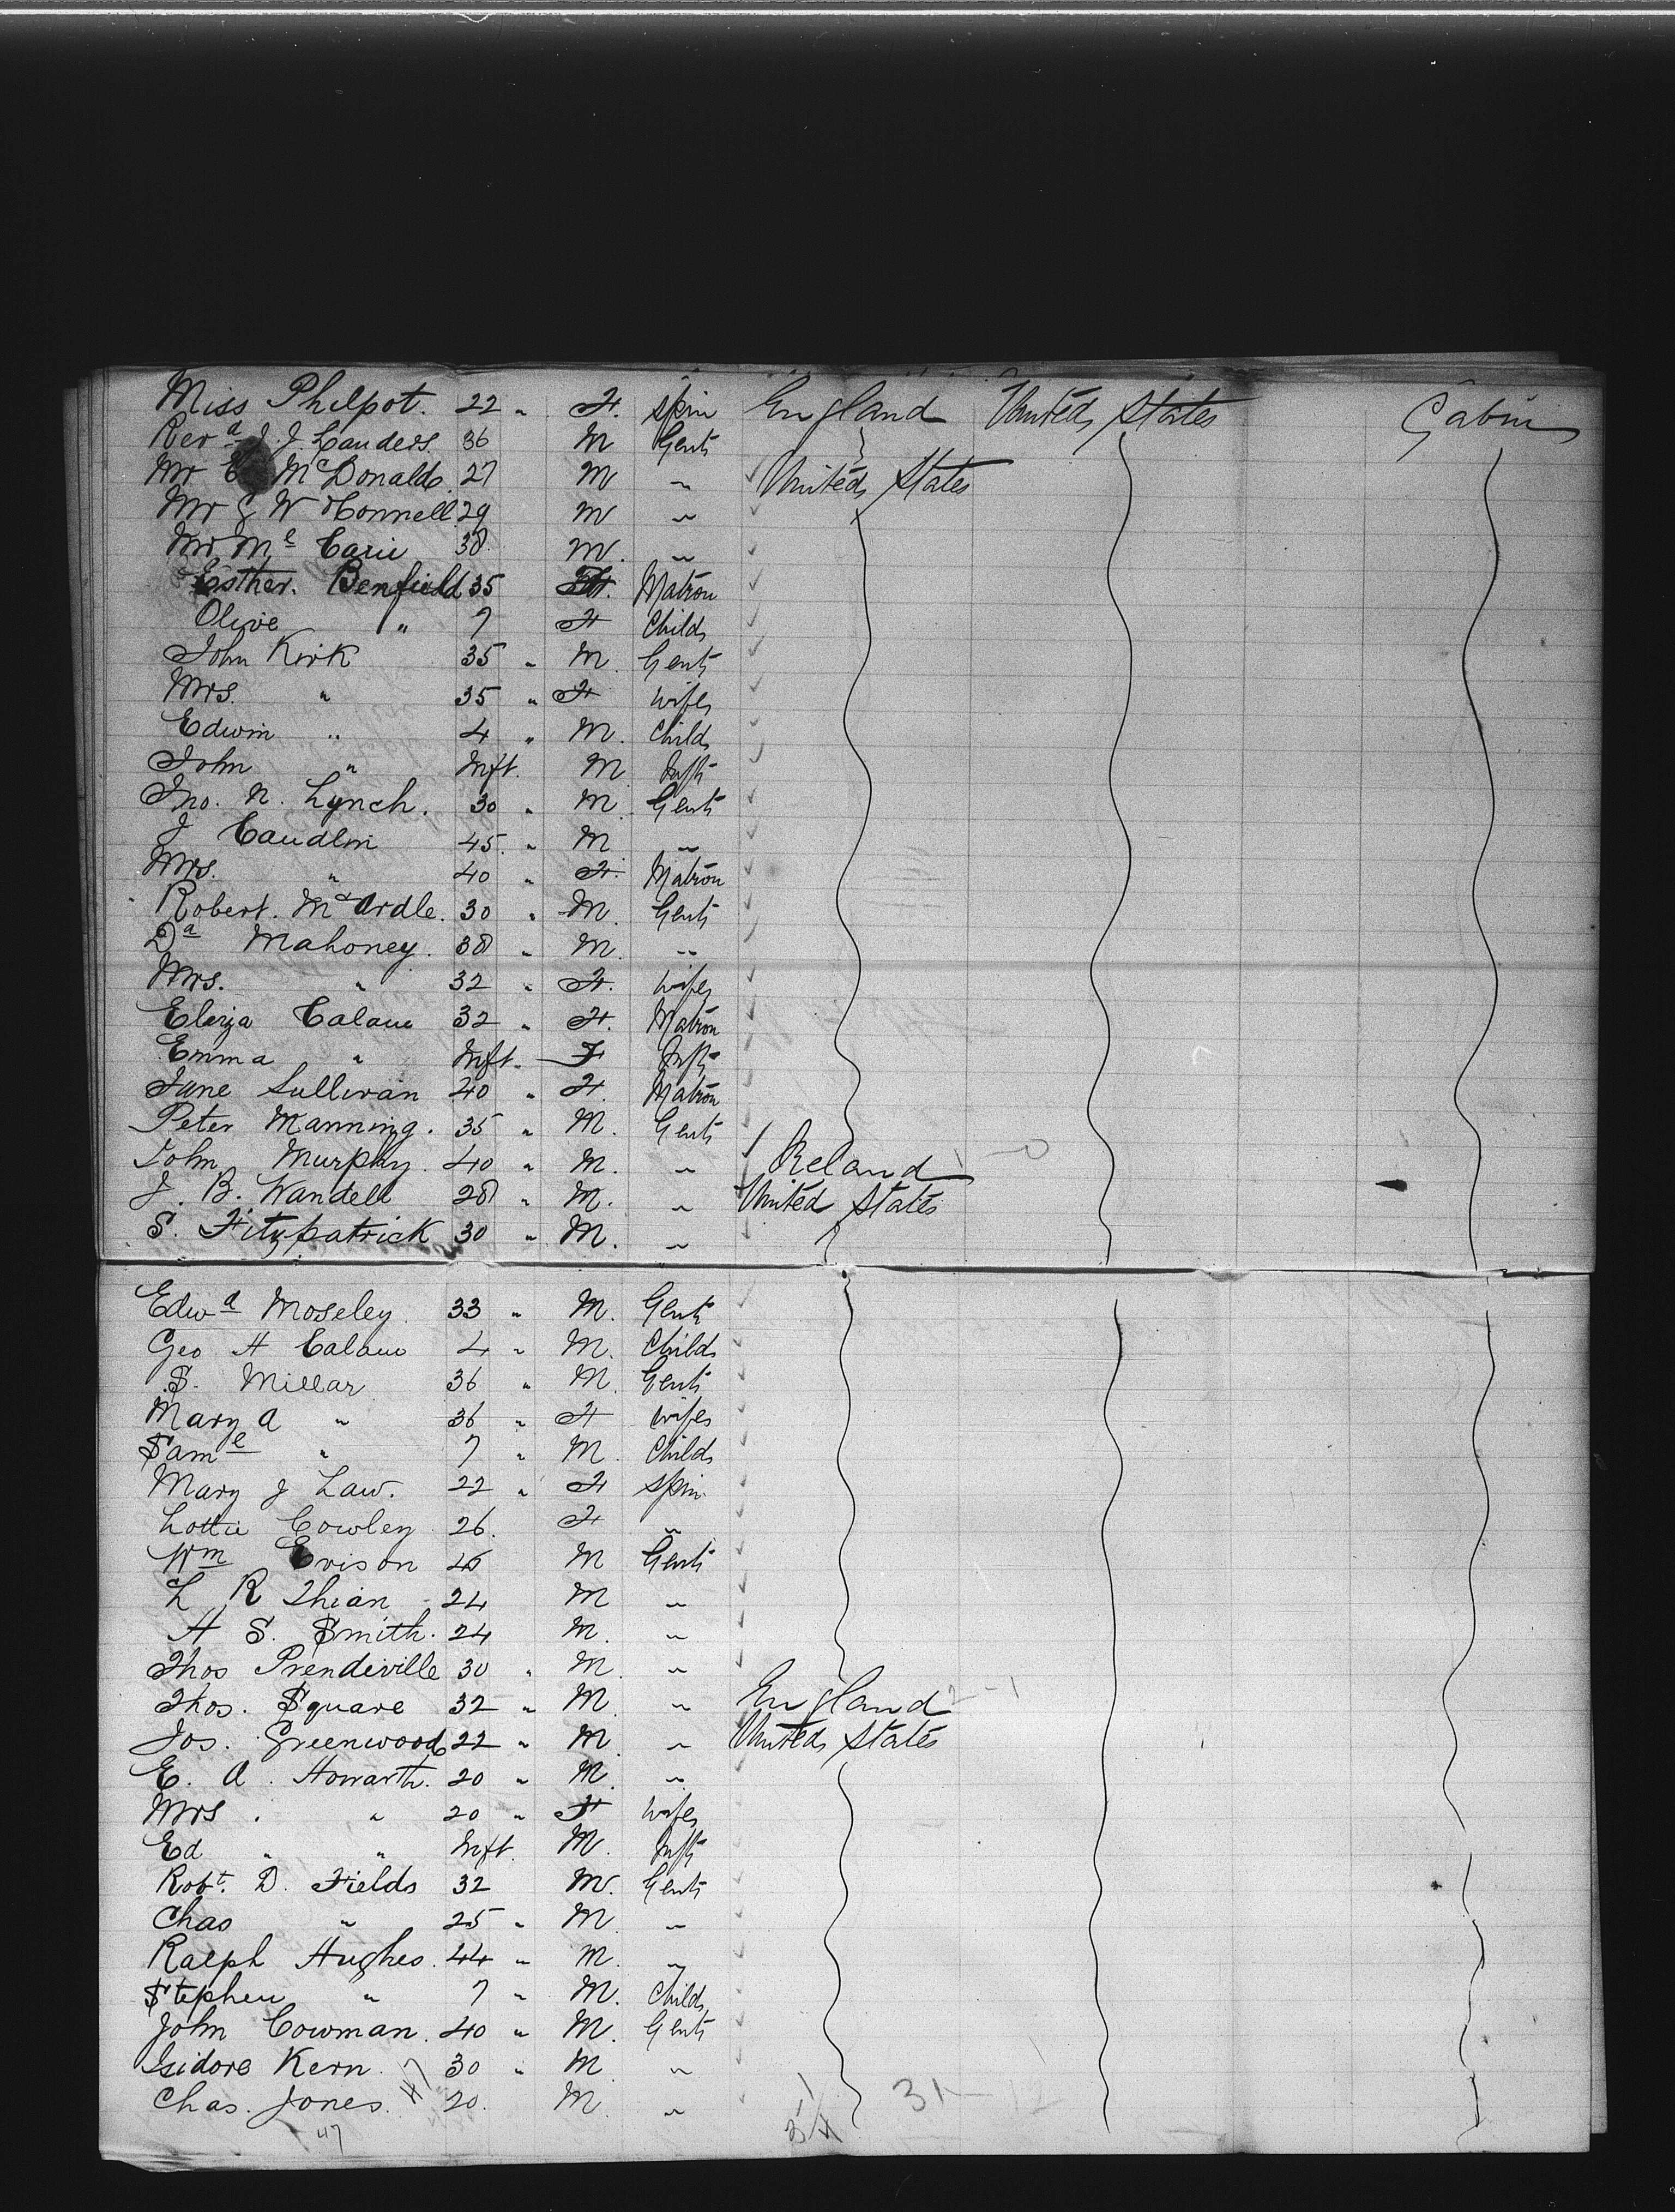 Miss Philpot. 22 " F. Spin England United States Cabin
Revd J. J. Landers. 36 M Gent
Mr McDonald. 27 M " United States
Mr W Connell 29 M "
Mr Mc 38 M. "
Esther. Benfield 35 F. Matron
Olive " 7 F Child
John Kirk 35 " M. Gent
Mrs. " 35 " F wife
Edwin " 4 " M. Child
John " Inft. M Inft
Jno. N. Lynch. 30 " M. Gent
J Caudlin 45. " M "
Mrs. " 40 " F. Matron
Robert. McArdle. 30 " M. Gent
Da Mahoney. 38 " M. "
Mrs. " 32 " F. wife
Eliza Calam 32 " F. Matron
Emma " Inft. F Inft
Jane Sullivan 40 " F. Matron
Peter Manning. 35 " M. Gent
John Murphy. 40 " M. " Ireland
J. B. Wandell 28 " M. " United States
S. Fitzpatrick 30 " M. "
Edwd Moseley. 33 " M. Gent
Geo H Calam 4 " M. Child
S. Millar 36 " M. Gent
Mary A " 36 " F wife
Saml " 7 " M. Child
Mary J Law. 22 " F Spin
Lottie Cowley 26. F "
Wm Evison 45 M Gent
L R Thian 24 M "
H S. Smith. 24 M. "
Thos Prendiville 30 " M. "
Thos. Square 32 " M " England 2 - 1
Jos. Greenwood 22 " M. " United States
E. A. Howarth. 20 " M. "
Mrs. " 20 " F wife
Ed " " Inft. M. Inft
Robt. D. Fields 32 M. Gent
Chas " 25 " M. "
Ralph Hughes. 44 " M. "
Stephen " 7 " M. Child
John Cowman. 40 " M. Gent
Isidore Kern. 30 " M "
Chas. Jones. 20. M. "
47 31 - 12